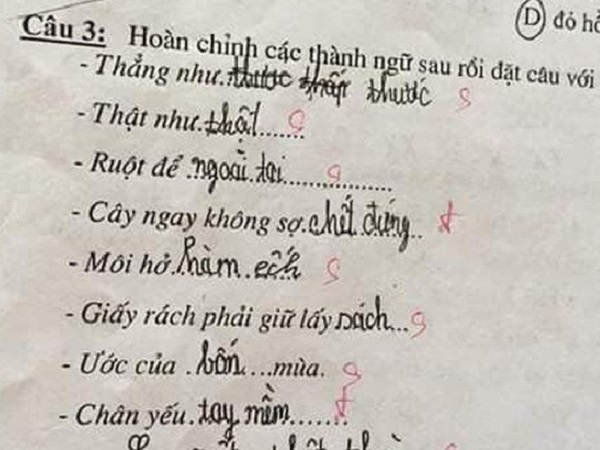 (D) đỏ
Câu 3: Hoàn chỉnh các thành ngữ sau rồi đặt câu với
- Thẳng như thước
- Thật như thật.......
- Ruột để ngoài tai...............
- Cây ngay không sợ chết đứng..
- Môi hở hàm ếch
- Giấy rách phải giữ lấy sách...
- Ước của bốn....mùa.
- Chân yếu tay mềm.......